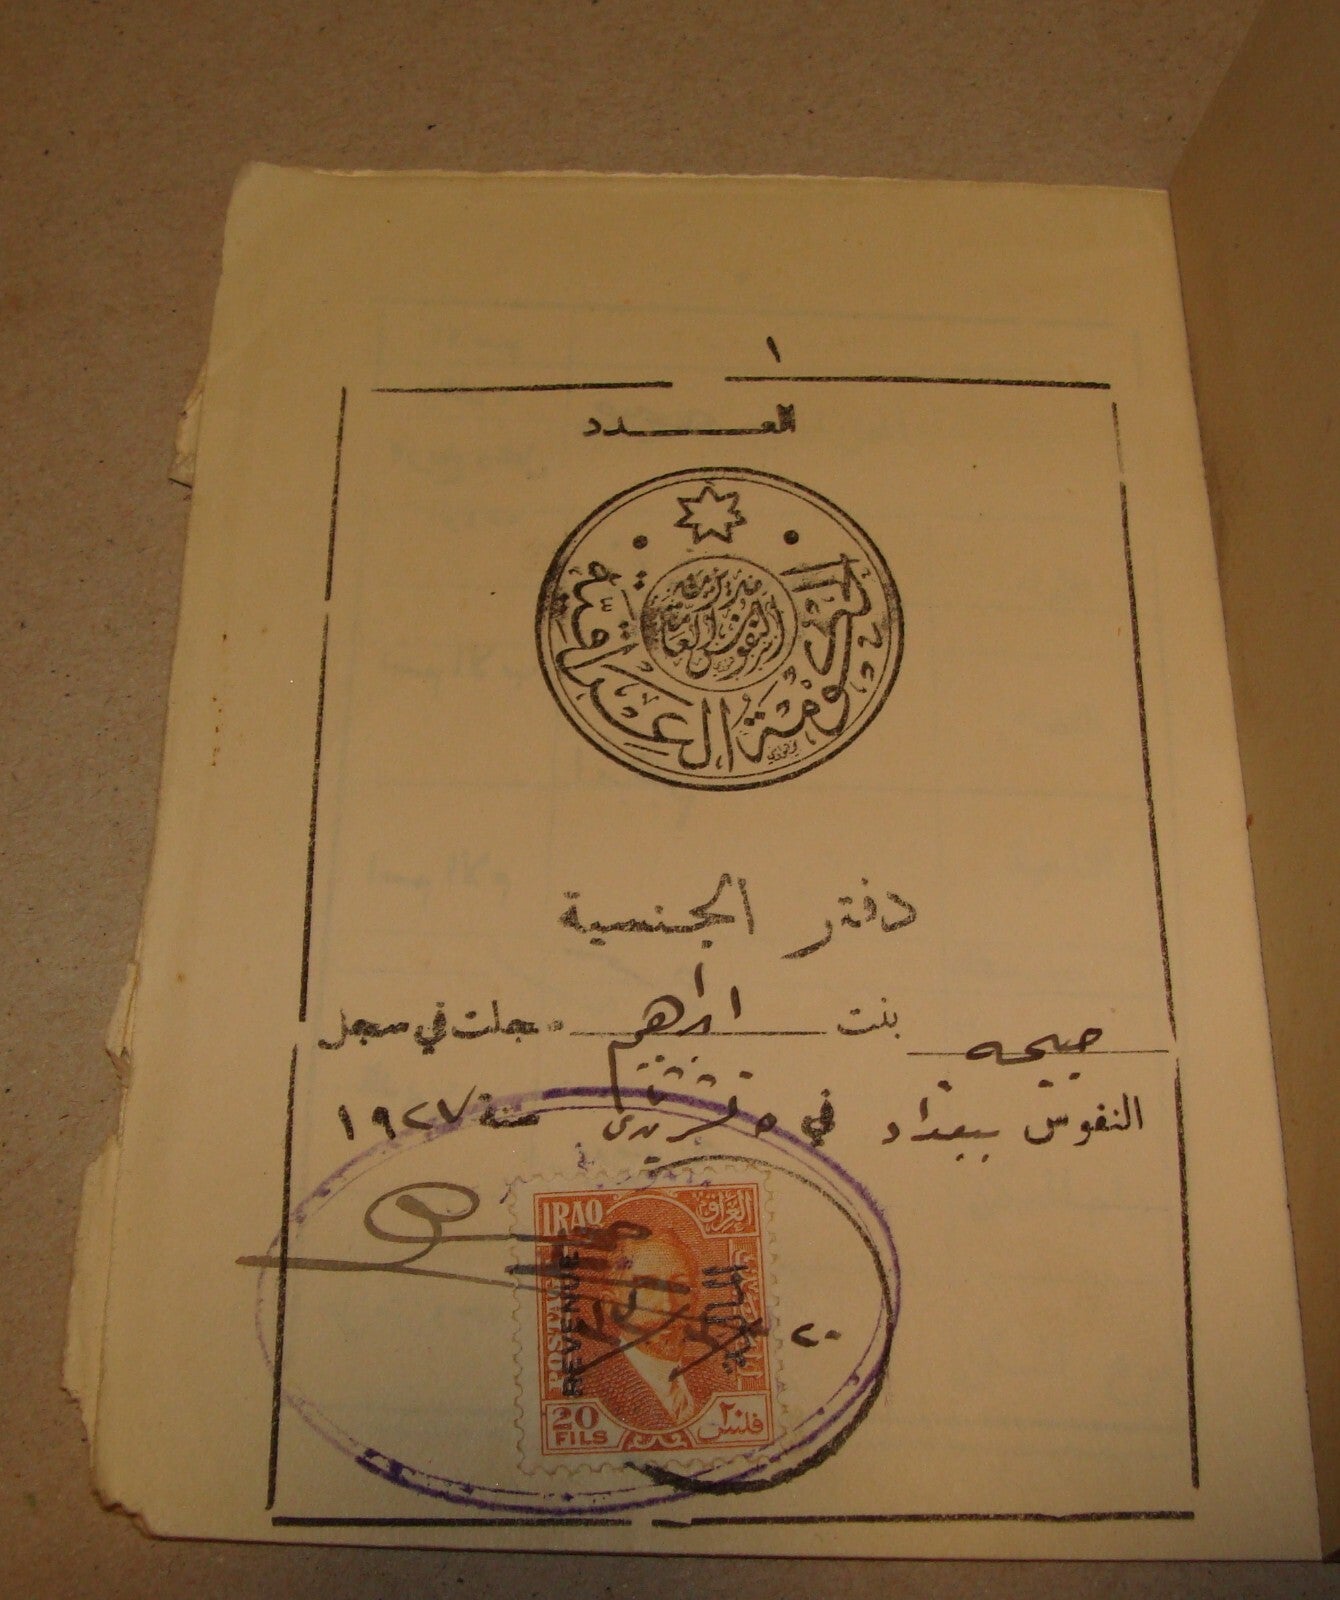 ١
العدد
الحكومة العراقية
مديرية النفوس العامة
دفتر الجنسية
صبيحه بنت ابراهيم سجلت في سجل
النفوس ببغداد في ٥ سنة ١٩٢٧
IRAQ العراق
POSTAGE
REVENUE
المالية
٢٠
20 FILS
٢٠ فلس